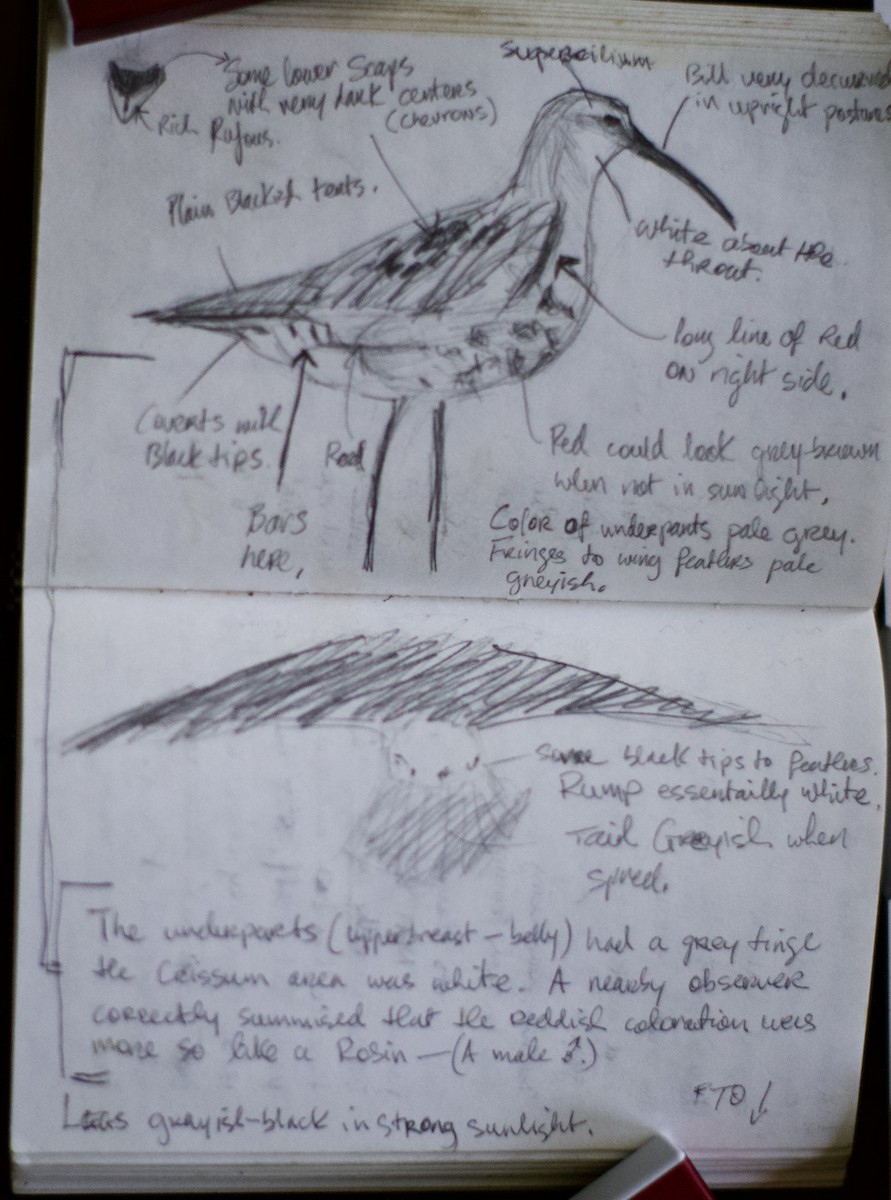 Some lower Scaps
with very dark centers
(chevrons)
Rich
Rufous.
Supercilium
Bill very decurved
in upright posture
Plain Blackish terts.
white about the
throat.
long line of Red
on right side.
Coverts with
Black tips.
Red
Bars
here,
Red could look grey-brown
when not in sunlight,
Color of underparts pale grey.
Fringes to wing feathers pale
greyish.
some black tips to feathers.
Rump essentailly white,
Tail Greyish when
spred.
The underparts (upperbreast - belly) had a grey tinge
the Crissum area was white. A nearby observer
correctly summised that the reddish coloration was
more so like a Robin - (A male ♂.)
PTO ↓
Legs greyish-black in strong sunlight.